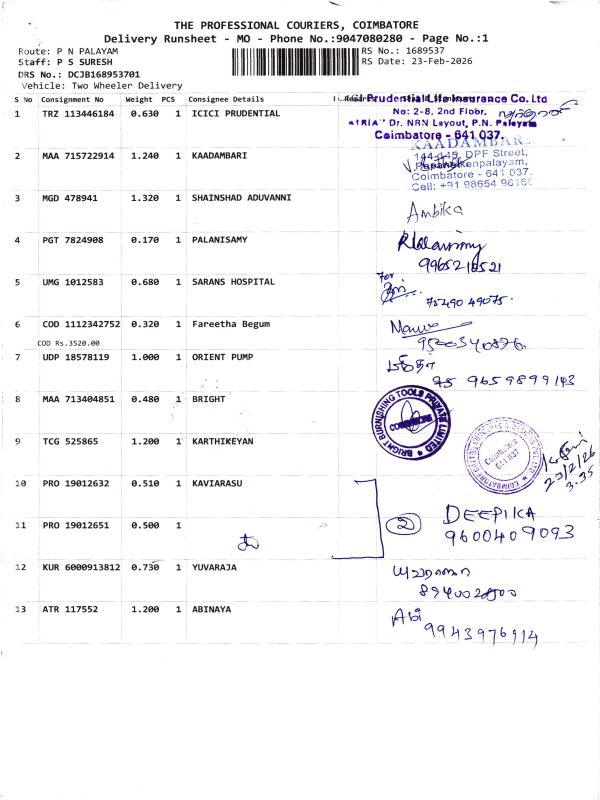 THE PROFESSIONAL COURIERS, COIMBATORE
Delivery Runsheet - MO - Phone No.:9047080280 - Page No.:1
Route: P N PALAYAM
RS No.: 1689537
Staff: P S SURESH
RS Date: 23-Feb-2026
DRS No.: DCJB168953701
Vehicle: Two Wheeler Delivery
S No Consignment No Weight PCS Consignee Details
1 TRZ 113446184 0.630 1 ICICI PRUDENTIAL
Prudential Life Insurance Co. Ltd
No: 2-8, 2nd Floor,
"ATRIA" Dr. NRN Layout, P.N. Palayam
Coimbatore - 641 037.
2 MAA 715722914 1.240 1 KAADAMBARI
KAADAMBARI
DPF Street,
Coimbatore - 641 037.
Cell: +91 98654
3 MGD 478941 1.320 1 SHAINSHAD ADUVANNI
Ambika
4 PGT 7824908 0.170 1 PALANISAMY
5 UMG 1012583 0.680 1 SARANS HOSPITAL
for
75490 49075.
6 COD 1112342752 0.320 1 Fareetha Begum
COD Rs.3520.00
7 UDP 18578119 1.000 1 ORIENT PUMP
9659899143
8 MAA 713404851 0.480 1 BRIGHT
BRIGHT BURNISHING TOOLS PRIVATE LIMITED
COIMBATORE
9 TCG 525865 1.200 1 KARTHIKEYAN
Coimbatore
641 037
23/2/26
3.35
10 PRO 19012632 0.510 1 KAVIARASU
11 PRO 19012651 0.500 1
2
DEEPIKA
9600409093
12 KUR 6000913812 0.730 1 YUVARAJA
யுவராஜா
13 ATR 117552 1.200 1 ABINAYA
Abi
9943976914